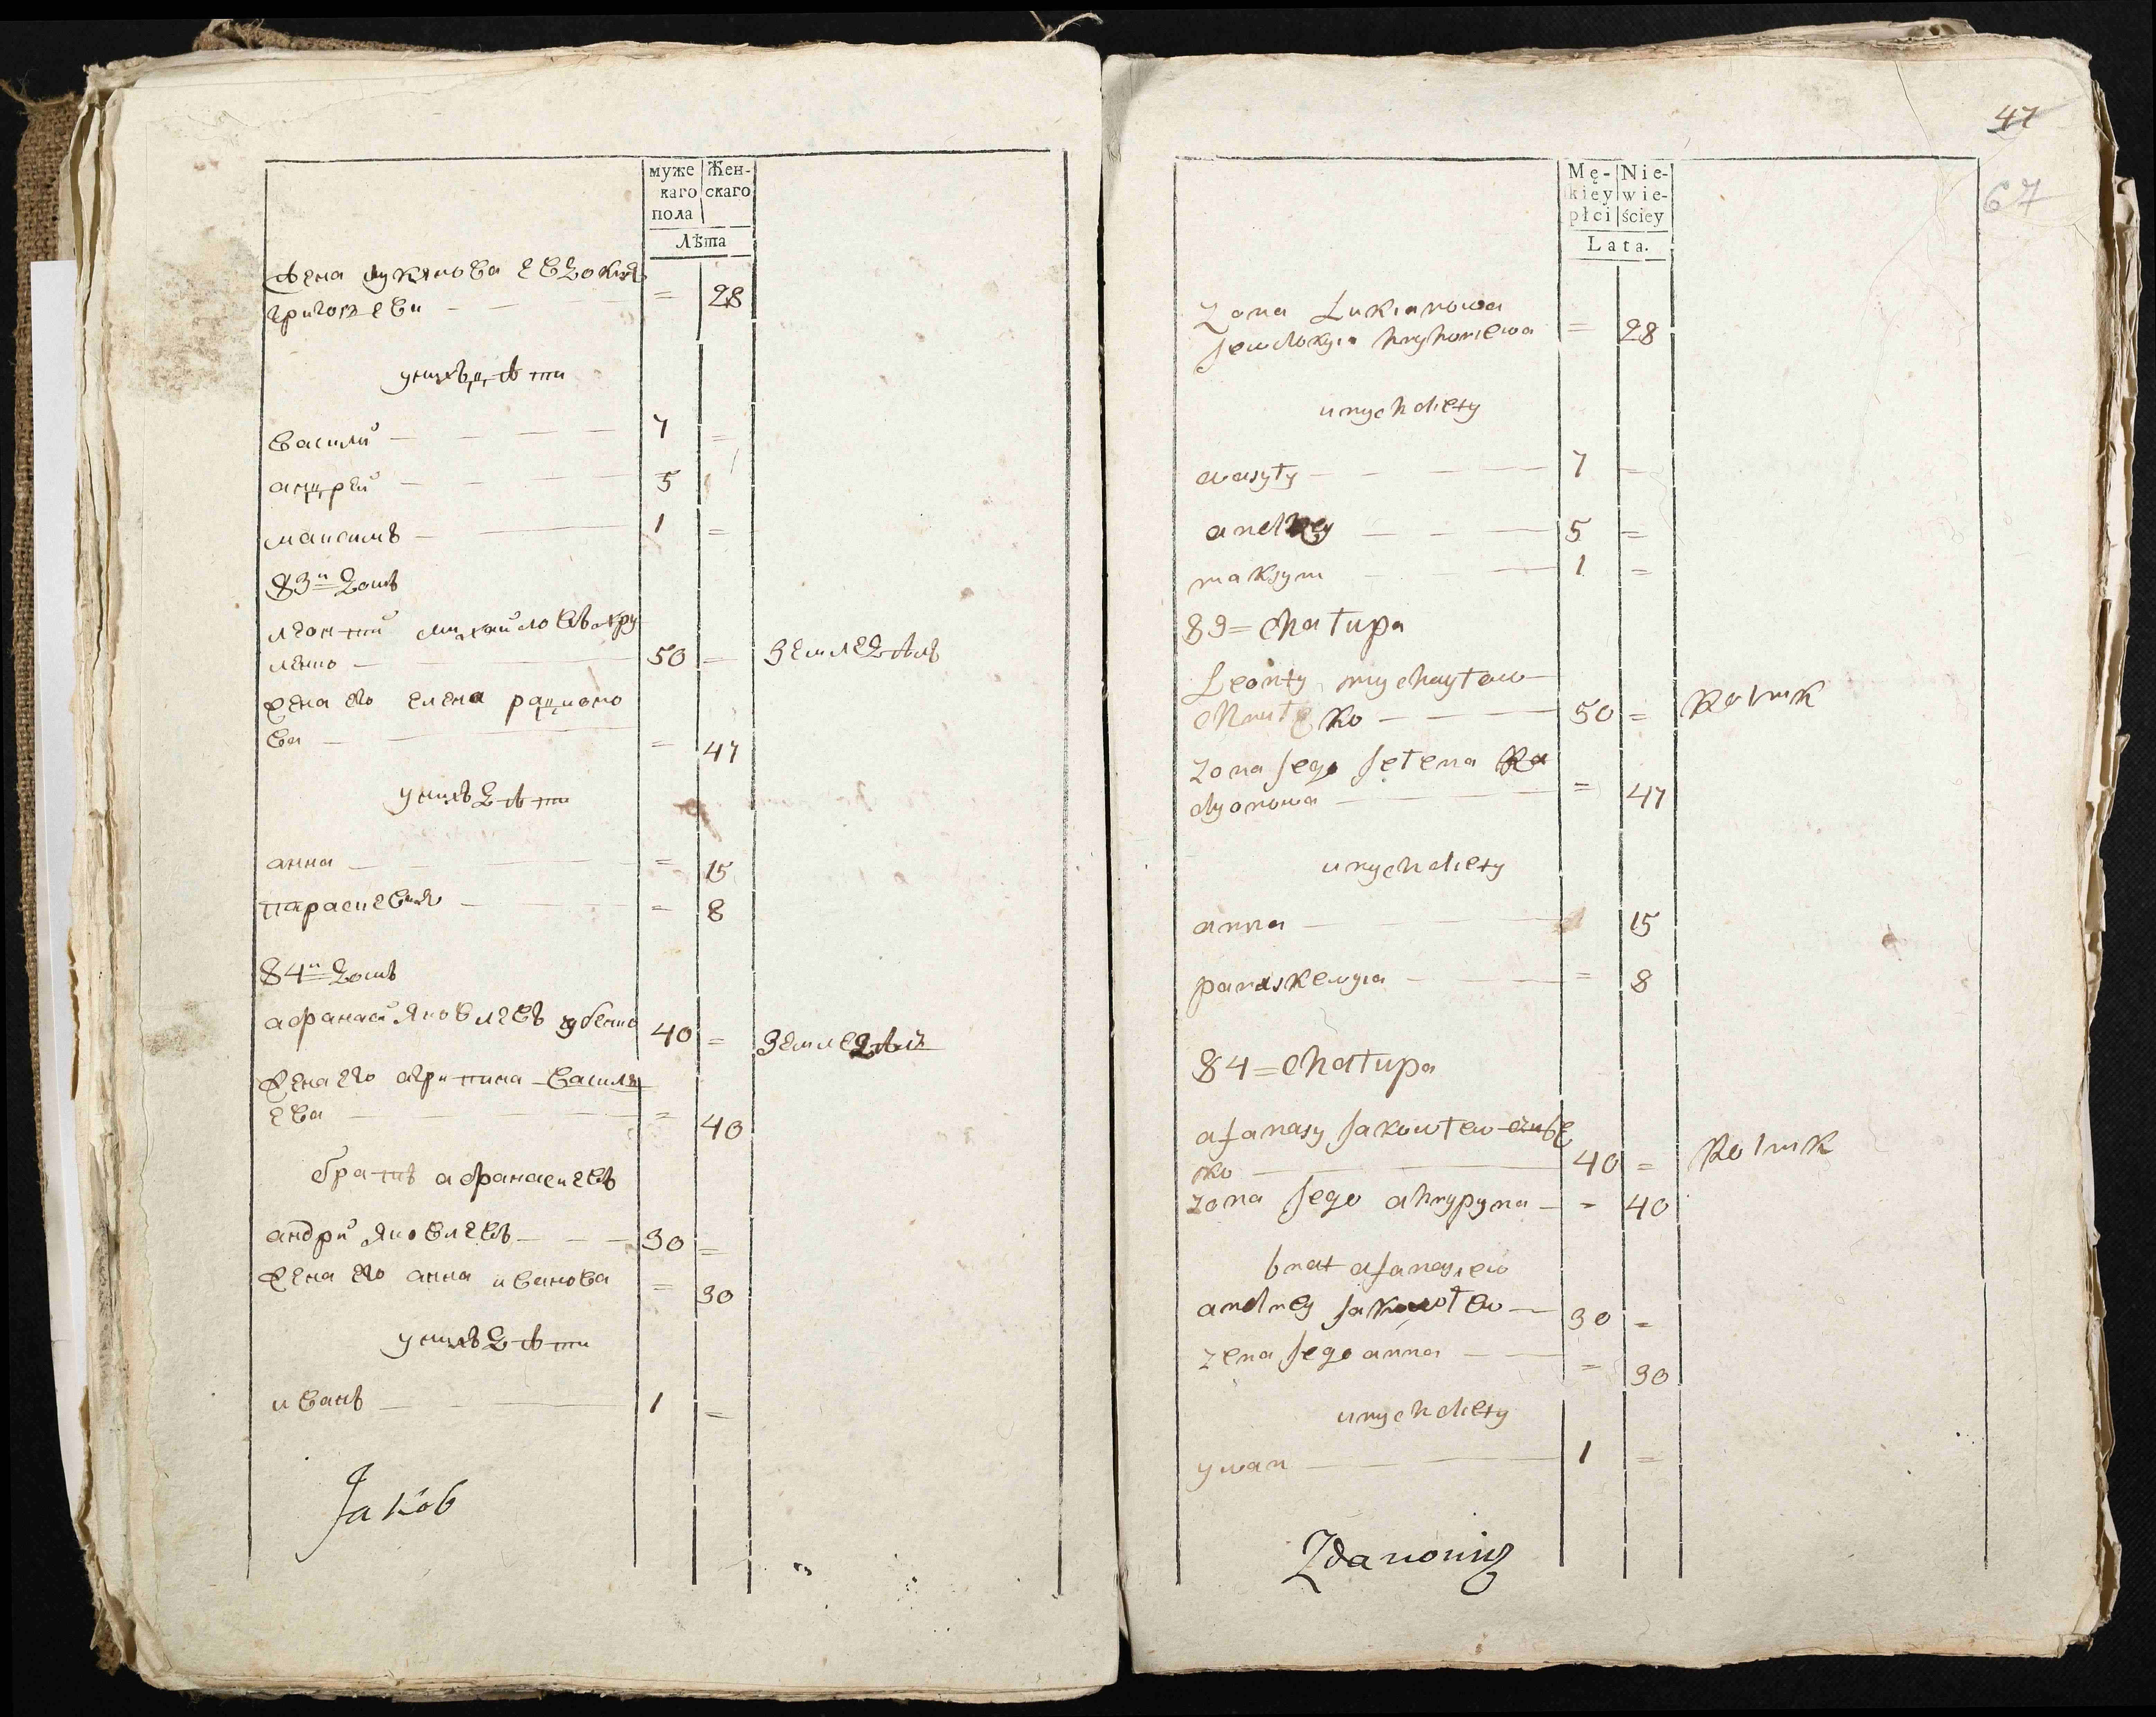 муже
каго
пола
Жен-
скаго
Лѣта
жена лукянова евдокия
григориева — — = 28
уныхъ дѣти
василий — — — 7 =
андрей — — — 5
максимъ — — 1 =
83й домъ
леонтий михайловъ хру
ленко — 50 = земледѣлъ
жена его елена радионо
ва — = 47
унихъ дѣти
анна — — — = 15
параскевия — — = 8
84й домъ
афанаси яковлевъ
40 = земледѣлъ
жена его агрипина василя
ева — — — = 40
братъ афанасиевъ
андрй яковлевъ — — 30 =
жена его анна иванова = 30
унихъ дѣти
иванъ — — — 1 =
Jakób
47
67
Mę-
kiey
płci
Nie-
wie-
ściey
Lata.
Zona Łukianowa
Jewdokyia hryhoriewa = 28
unych diety
wasyły — — — 7 =
andrey — — — 5 =
maksym — — 1 =
83 = Chałupa
Leonty mychayłow
Chrułęko — — — 50 = Rolnik
zona Jego Jełena Ra
dyonowa — — = 47
unych diety
anna — — 15
paraskewyia — — = 8
84 = Chałupa
afanasy Jakowlew
ko — 40 = Rolnik
zona Jego ahrypyna — = 40
brat afanasiew
andrey Jakowlew — 30 =
zena Jego anna — — = 30
unych diety
ywan — — — 1 =
Zdanowicz